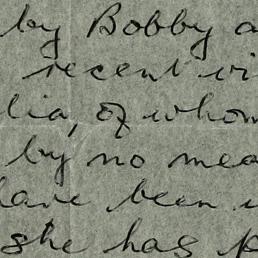 by Bobby a
recent vi
lia, of whom
by no mea
have been
she has p